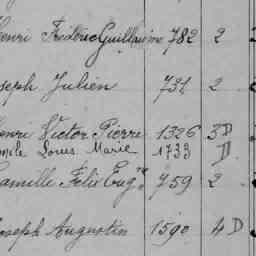 Henri Frédéric Guillaume 782 2
Joseph Julien 731 2
Henri Victor Pierre 1326 3D
Louis Marie 1733 D
Camille Félix Eugne 759 2
Joseph Augustin 1590 4D